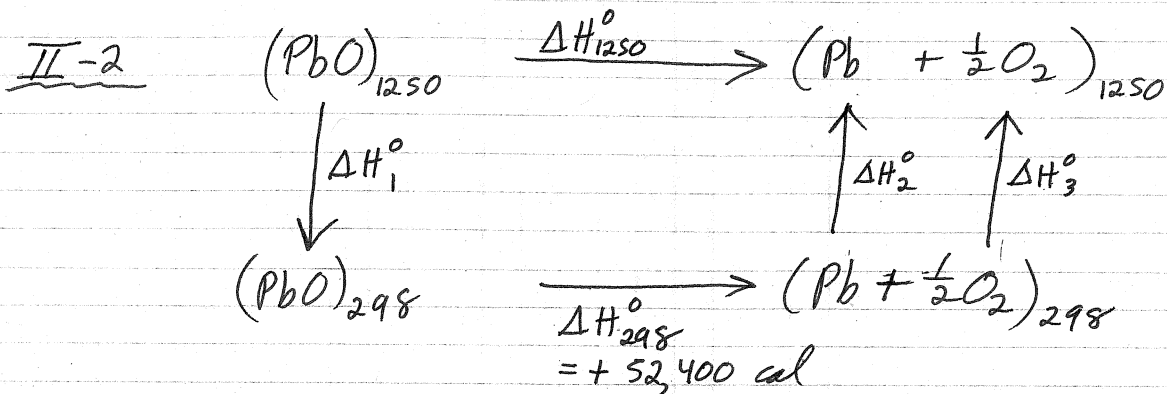 II-2 (PbO)₁₂₅₀ ΔH°₁₂₅₀ (Pb + ½O₂)₁₂₅₀
ΔH°₁ ΔH°₂ ΔH°₃
(PbO)₂₉₈ (Pb + ½O₂)₂₉₈
ΔH°₂₉₈
= + 52,400 cal